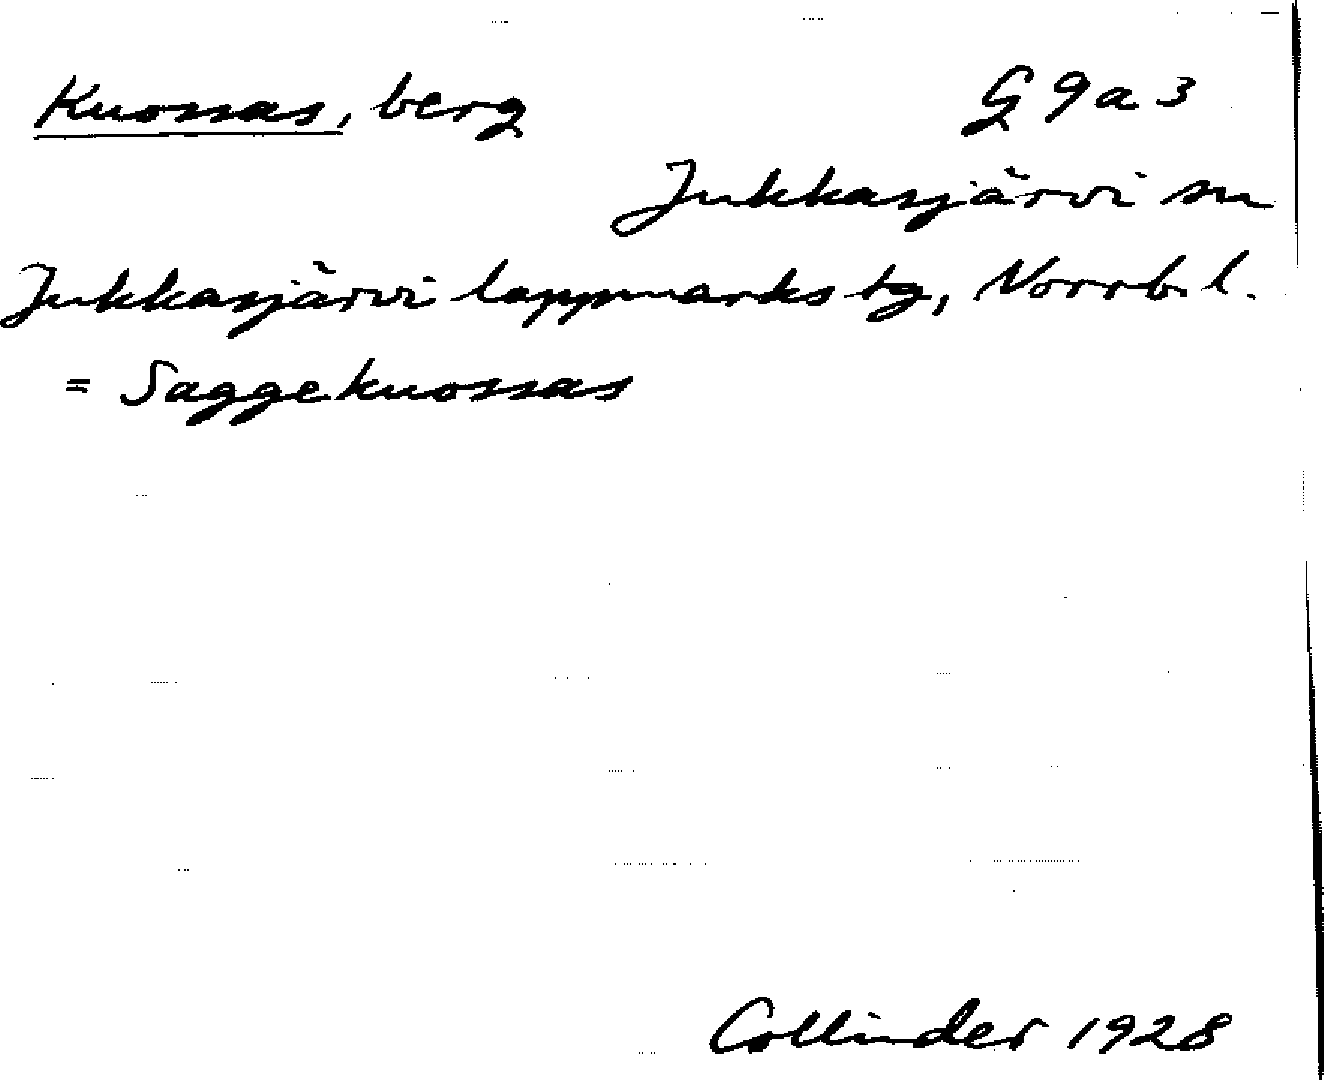 Kuossas, berg G 9 a 3
Jukkasjärvi sn
Jukkasjärvi lappmarks tg, Norrb. l.
= Saggekuossas
Collinder 1928